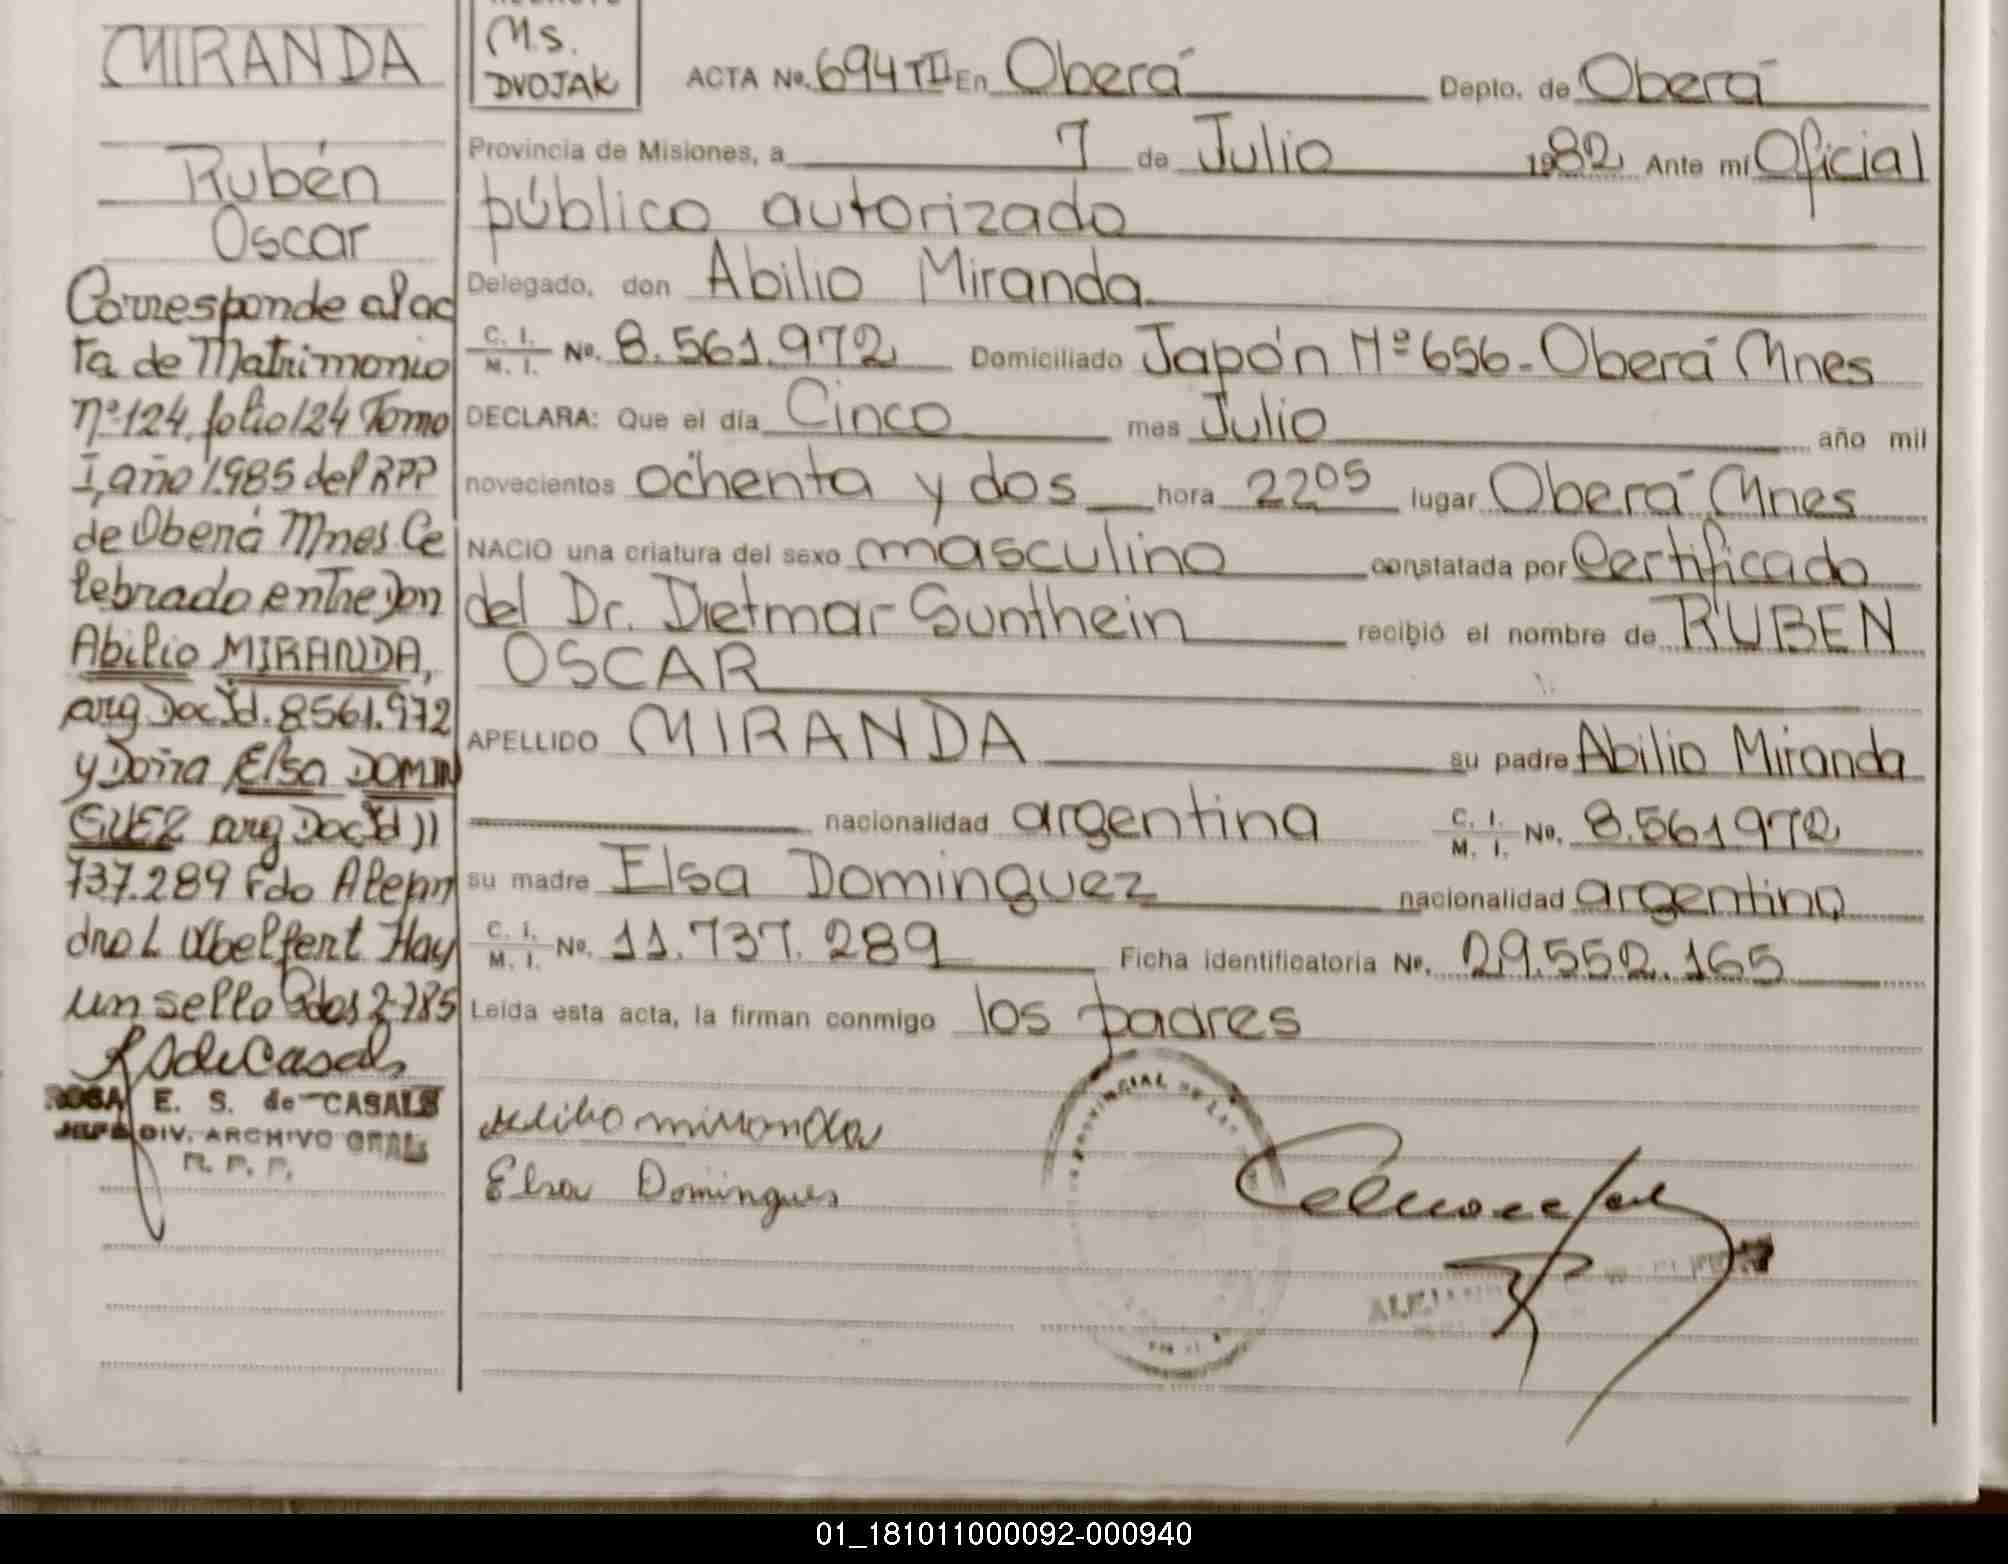 MIRANDA
Rubén
Oscar
Corresponde al ac
ta de Matrimonio
nº 124, folio 124 Tomo
I, año 1.985 del RPP
de Oberá Mnes Ce
lebrado entre Don
Abilio MIRANDA,
arg Doc Id. 8561.972
y Doña Elsa DOMIN
GUEZ arg Doc Id 11
737.289 Fdo Alejan
dro L Hay
un sello Pdos 2-785
ROSA E. S. de CASALS
JEFA DIV. ARCHIVO GRAL
R. P. P.
M.S.
DVOJAK
ACTA No. 694 TII En Oberá Depto. de Oberá
Provincia de Misiones, a 7 de Julio 1982 Ante mí Oficial
público autorizado
Delegado, don Abilio Miranda
C. I. M. I. No. 8.561.972 Domiciliado Japón Nº 656 - Oberá Mnes
DECLARA: Que el día Cinco mes Julio año mil
novecientos ochenta y dos hora 22 05 lugar Oberá Mnes
NACIO una criatura del sexo masculino constatada por Certificado
del Dr. Dietmar Sunthein recibió el nombre de RUBEN
OSCAR
APELLIDO MIRANDA su padre Abilio Miranda
nacionalidad argentina C. I. M. I. No. 8.561972
su madre Elsa Dominguez nacionalidad argentina
C. I. M. I. No. 11.737.289 Ficha identificatoria No. 29.552.165
Leída esta acta, la firman conmigo los padres
Abilio miranda
Elsa Domingues
01_181011000092-000940